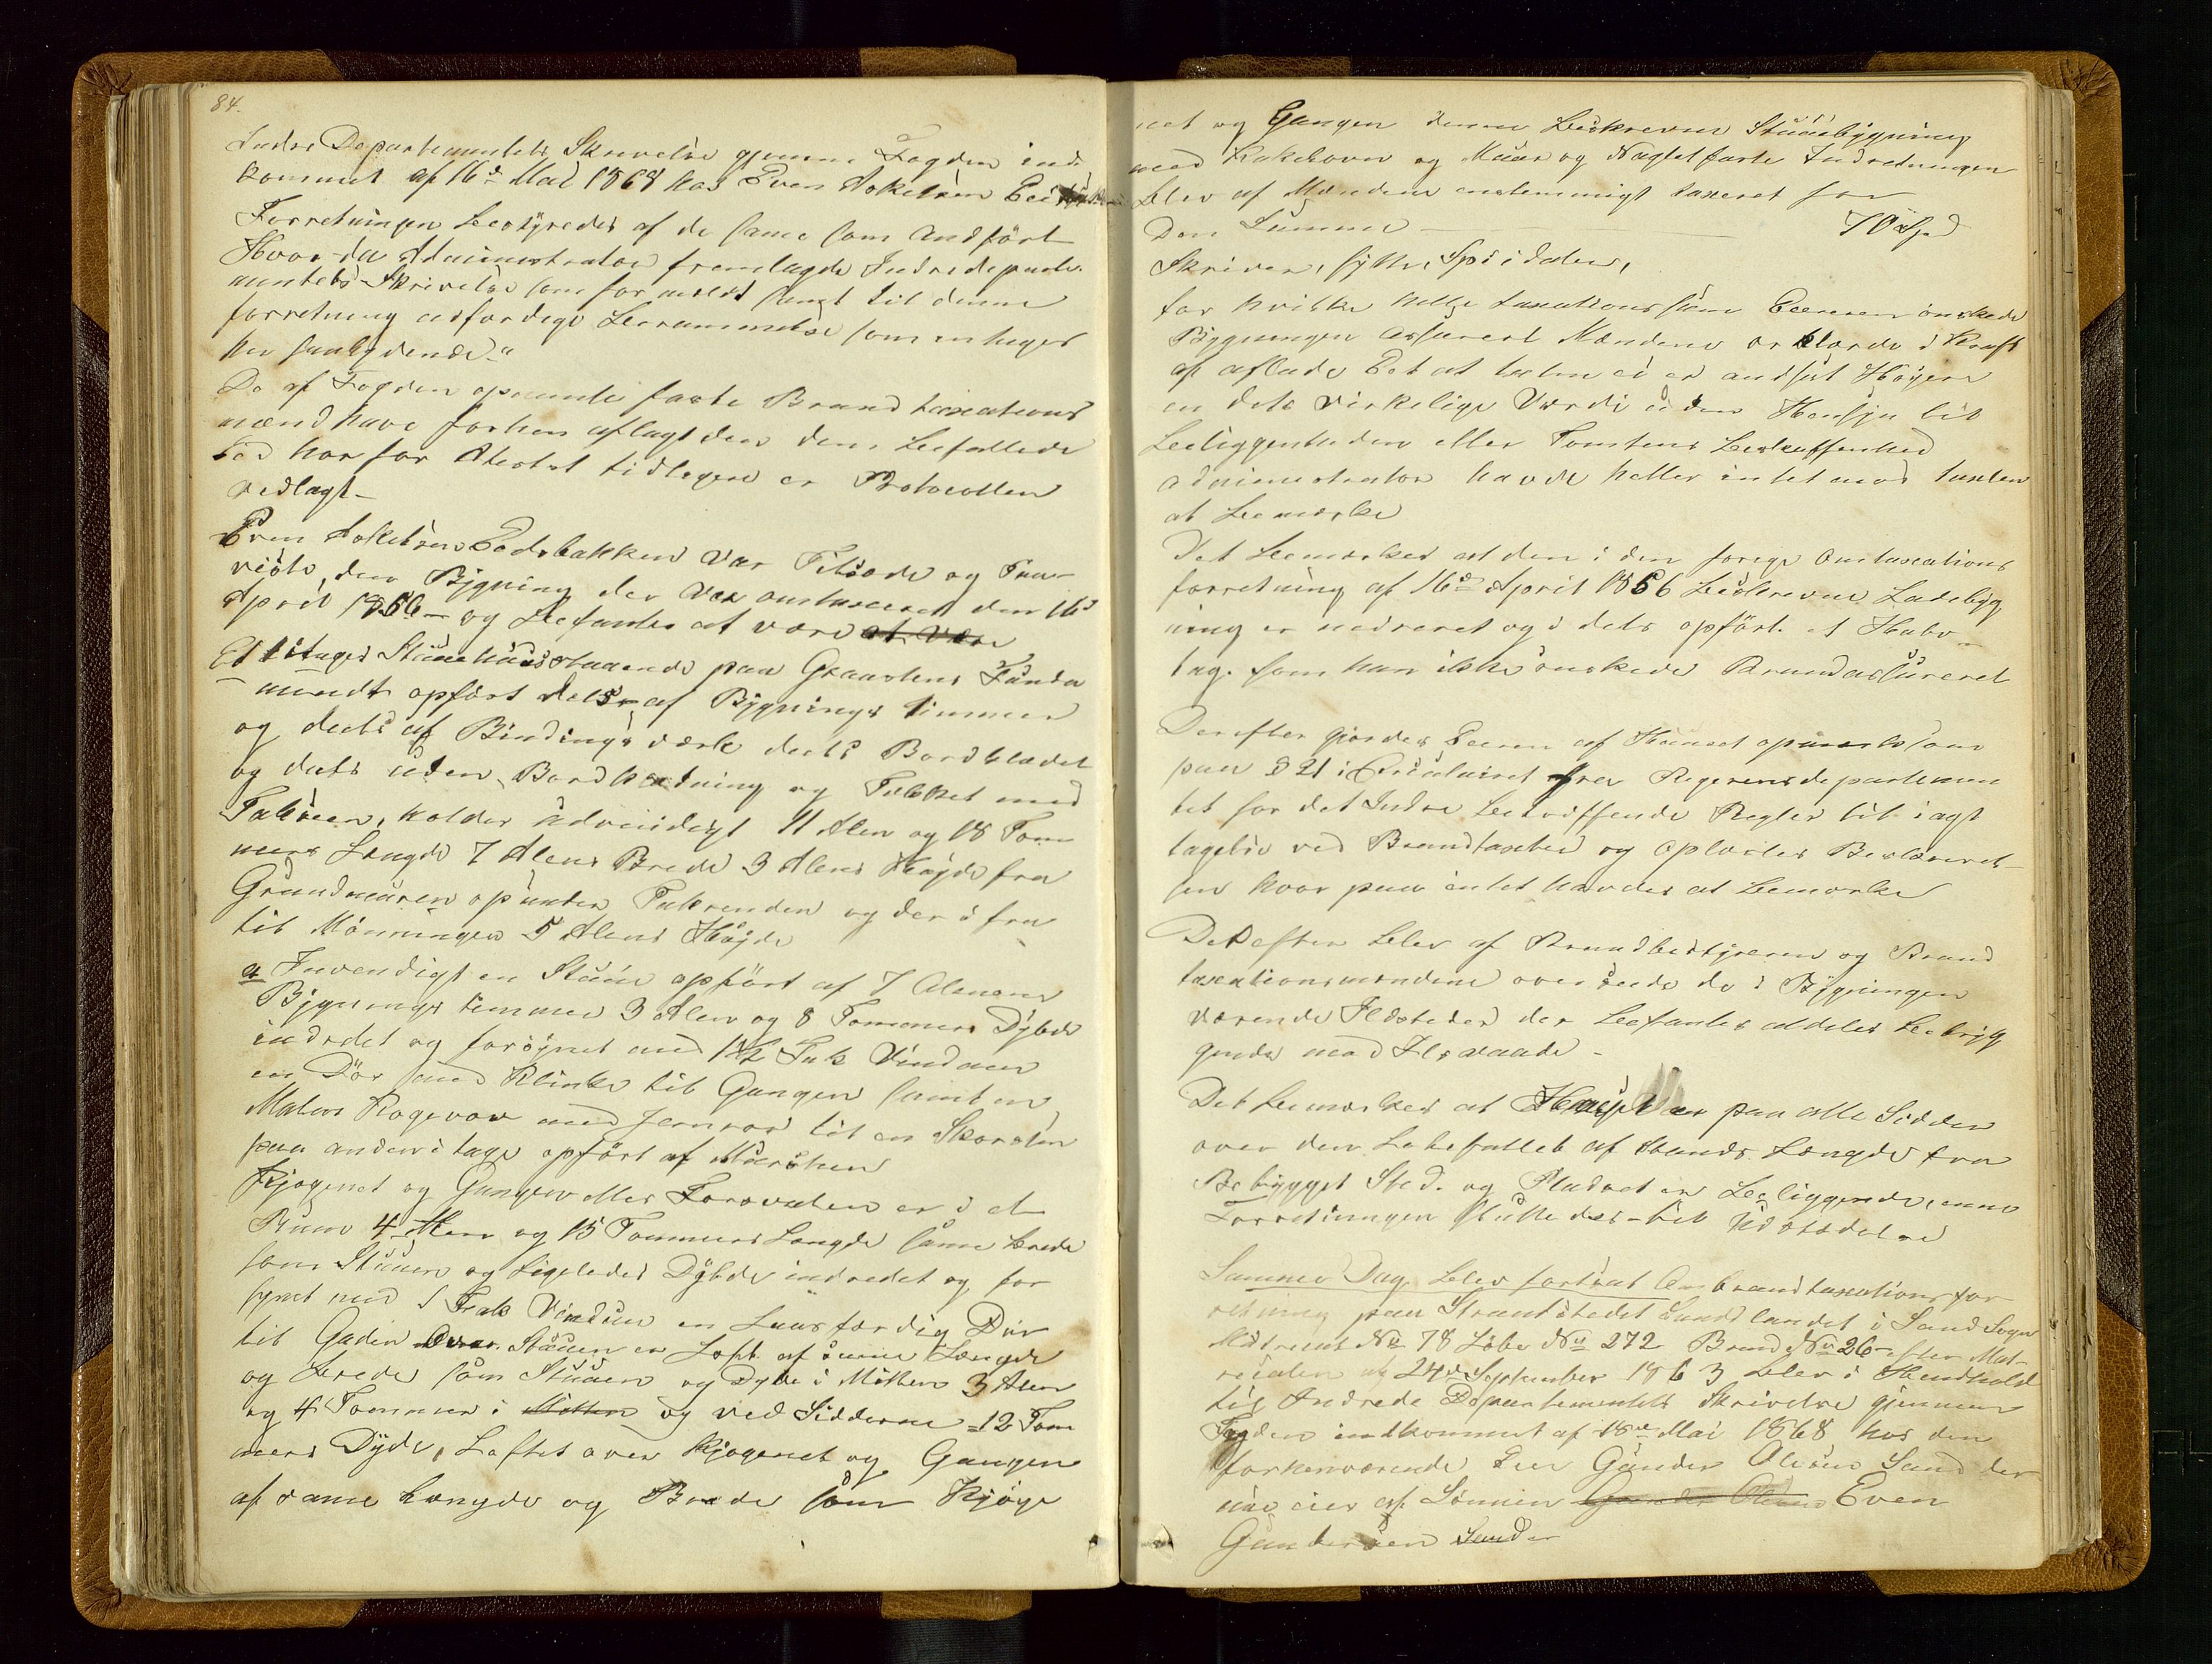 84.
Indre Departementets Skrivelse gjennem Fogden ind-
kommet af 16de Mai 1868 hos Even Askelsen
Forretningen bestyredes af de same som Andført
Hvor da Administrator fremlagde Indredeparte-
mentets Skrivelse som for meldt samt til denne
forretning udfærdige Berammelse som entages
her saalydende"
De af Fogden opnævnte faste Brand taxations
mænd have forhen aflagt den dem befallede
Ed hor for Atestat tidligere er Protocollen
vedlagt-
Even Askelsen Eedsbakken var Tilstæde og Frem
viste den Bygning der var omtaxeret den 16d
April 1856 og befantes at være at være
Et etages Stuuehuus staaende paa Graastens Funda
ment opført dels af Bygnings tømmer
og deels af Bindings værk deels Bordklædet
og deels uden Bordklædning og Tækket med
Tabsteen, holder udvendigt 11 Alen og 18 Tom
mers Længde 7 Alens Brede 3 Alens Høyde fra
Grundmuren op under Takrenden og der i fra
til Mønningen 5 Alens Høyde
a Invendigt en Stuue opført af 7 Alnens
Bygnings tømmer 3 Alen og 8 Tommers Dybde
indredet og forsynet med 1½ Fak Vinduer
en Dør med Klinke til Gangen samt en
Malere Kogeovn med Jernrør til en Skorsten
paa anden etage opført af Muursten
Kjøgenet og Gangen eller Forsvalen er i et
Ruum 4 Alen og 15 Tommers Længde same brede
som Stuuen og Ligeledes Dybde indredet og for
synet med 1 Fak Vindue en Laasfærdig Dør
til Gaden Over Stuuen er Loft af same Længde
og brede som Stuuen og Dybde i Mitten 3 Alen
og 4 Tommer i Mitten og ved Sidderne 12 Tom
mers Dyde, Loftet over Kjøgenet og Gangen
af same længde og Brede som Kjøge
net og Gangen denne beskrevne Stuuebygning
med Kakelovn og Muur og Nagletfaste Indredninger
blev af Mændene enstemmigt taxeret for
Den Summe 70 Spd
Skriver, sytti, Speciedaler,
for hvilke hele taxations sum Eieren ønskede
Bygningen assureret Mændene erklærede i Kraft
af aflade Eed at taxten ei er andsat Høyere
en dets virkelige Værdi uden Hensjn til
beliggenheden eller Tomtens beskaffenhed
administrator havde heller intet mod taxten
at bemærke
Det bemærkes at den i den forrige omtaxations
forretning af 16de April 1856 beskrevne Ladebyg
ning er nedrevet og i dets opført et Halv-
tag som han ikke ønskede Brandassureret
Derefter gjordes Eieren af Huuset opmærksom
paa § 21 i Circulairet fra Regerensdepartemen
tet for det Indre betræffende Regler til iagt
tagelse ved Brandtaxter og oplæstes Beskrivel-
sen hvor paa intet havdes at bemærke
Derefter blev af Brandbestyreren og Brand
taxationsmændene over seede de i Bygningen
værende Ildsteder der befantes aldeles betryg
gende mod Ildsvaade -
Det bemærkes at Huuset er paa alle Sidder
over den Lobefallet af stands Længde fra
Bebygget Sted. og Pladset er beliggende, enne
Forretningen sluttedes til Udstædelse
Samme Dag blev foretaat En brandtaxations for
retning paa Strandstedet Sandslandet i Sand Sogn
Matrecul No 78 Løbe No 272 Brand No 26 efter Mat-
reculen af 24de September 1863 blev i Henhold
til Indrede Departementets Skrivelse gjennem
Fogden indkommet af 18de Mai 1868 hos den
forhenværende Eier Gunder Olesen Sand der
nu eies af Sønnen Gunder Olesen Even
Gundersen Sand